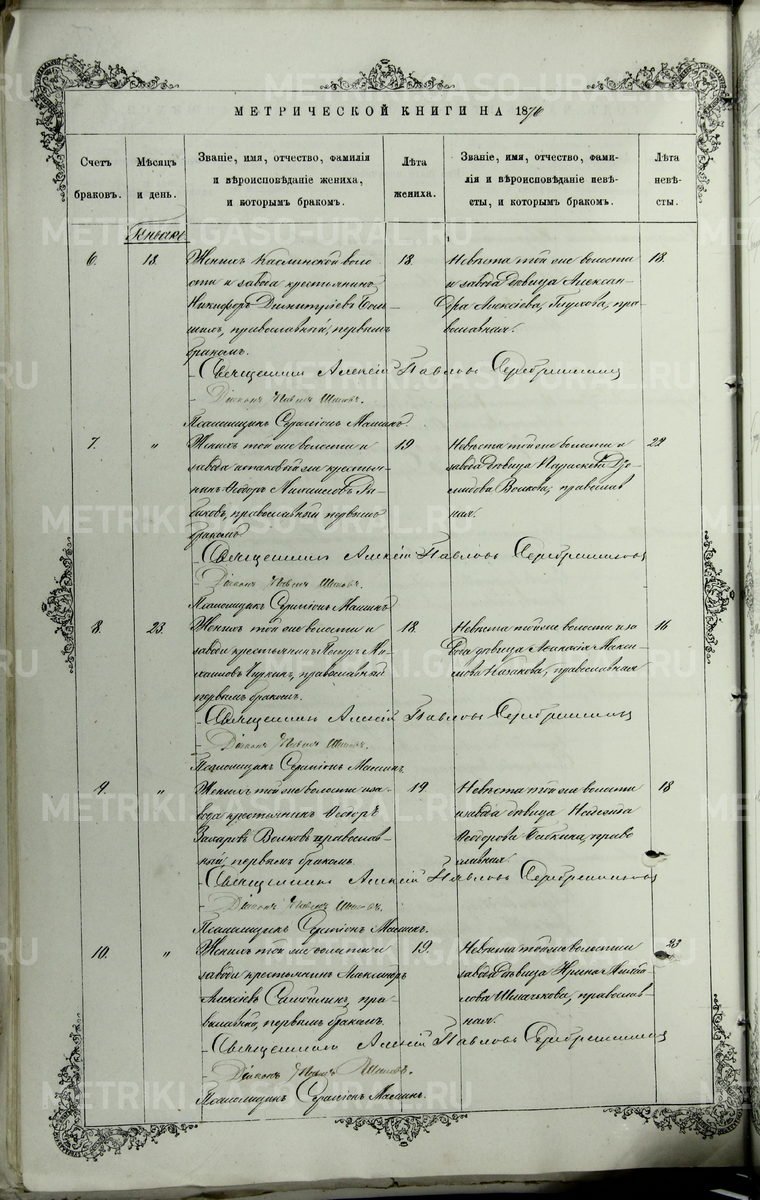 МЕТРИЧЕСКОЙ КНИГИ НА 1876
Счетъ браковъ.
Мѣсяцъ и день.
Званіе, имя, отчество, фамилія
и вѣроисповѣданіе жениха,
и которымъ бракомъ.
Лѣта жениха.
Званіе, имя, отчество, фами-
лія и вѣроисповѣданіе невѣ-
сты, и которымъ бракомъ.
Лѣта невѣ-
сты.
6. 18.
Женихъ Каслинской воло
сти и завода крестьянинъ
Никифоръ Димитріевъ
православный, первымъ
бракомъ.
18.
Невѣста той же волости
и завода дѣвица Алексан
дра Алексіева Глухова, пра
вославная.
18.
Священникъ Алексій Павловъ Серебренниковъ
Діаконъ
Псаломщикъ Серапіонъ Машинъ.
7. "
Женихъ той же волости и
завода крестья
нинъ Ѳеодоръ Михаиловъ
православный первымъ
бракомъ
19
Невѣста той же волости и
завода дѣвица Параскева
Волкова, православ
ная.
22
Священникъ Алексій Павловъ Серебренниковъ
Діаконъ
Псаломщикъ Серапіонъ Машинъ
8. 23.
Женихъ той же волости и
завода крестьянинъ Петръ Ми
хаиловъ Чиркинъ, православный
первымъ бракомъ.
18.
Невѣста той же волости и за
вода дѣвица Макси
мова Казакова, православная
16
Священникъ Алексій Павловъ Серебренниковъ
Діаконъ
Псаломщикъ Серапіонъ Машинъ
9. "
Женихъ той же волости и за
вода крестьянинъ Ѳеодоръ
Захаровъ Волковъ православ-
ный, первымъ бракомъ.
19
Невѣста той же волости
и завода дѣвица Надежда
Ѳеодорова Бабкина, право
славная.
18
Священникъ Алексій Павловъ Серебренниковъ
Діаконъ
Псаломщикъ Серапіонъ Машинъ.
10. "
Женихъ той же волости и
завода крестьянинъ Александръ
Алексіевъ пра-
вославный, первымъ бракомъ.
19.
Невѣста той же волости и
завода дѣвица Ирина
православ-
ная.
23
Священникъ Алексій Павловъ Серебренниковъ
Діаконъ
Псаломщикъ Серапіонъ Машинъ.
METRIKI.GASU-URAL.RU